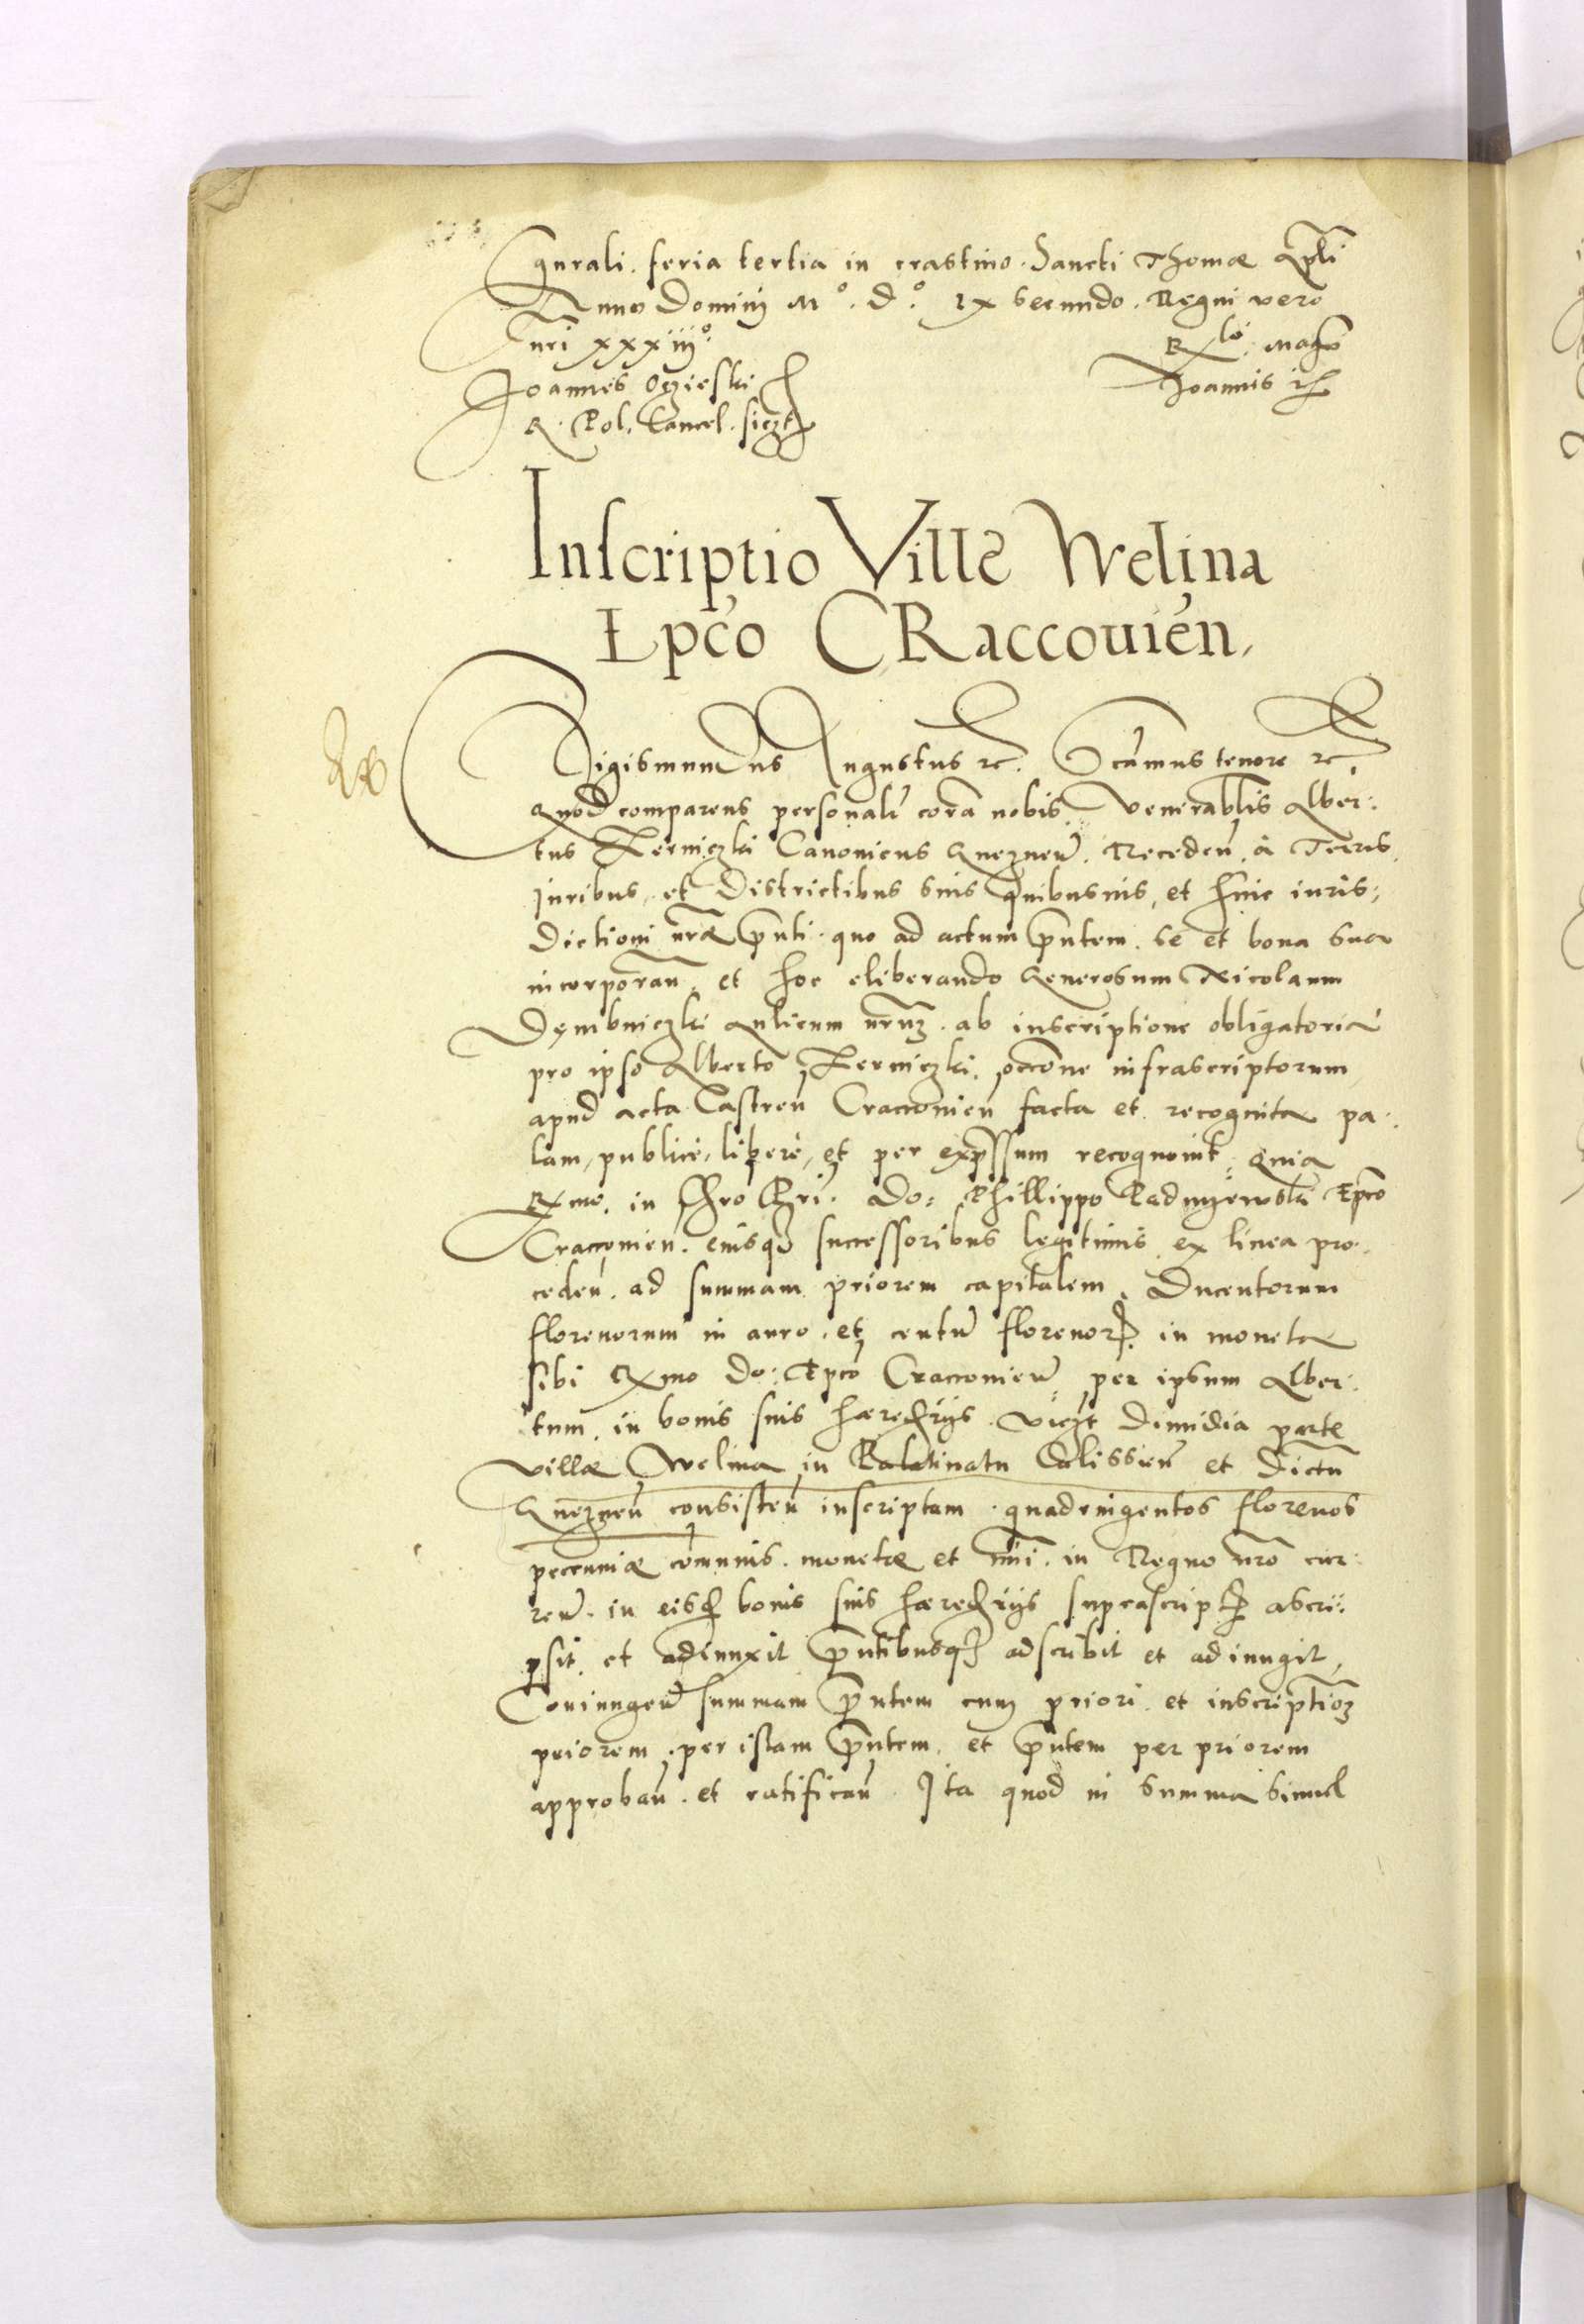 gnrali. feria tertia in crastino. Sancti Thomæ Apli
Anno Dominj M°. d°. lx secundo. Regni vero
nri xxxiij°.
Rlo. Magci
Joannes Oczieski
Joannis rc
R. Pol. Cancel. sszt
Inscriptio Ville Welina
Epco CRaccouien,
Sigismundus Augustus rc. Scamus tenore rc
Quod comparens personalr cora nobis Venerablis Alber:
tus Kerniczki Canonicus Gneznen. Receden. a Terris,
Juribus, et Districtibus suis quibusuis, et huic iuris:
dictioni nræ pnti. quo ad actum pntem. se et bona sua
incorporan. et hoc eliberando Generosum Nicolaum
Dembniczki Aulicum nrum. ab inscriptione obligatoria
pro ipso Alberto Kerniczki, occone infrascriptorum
apud acta Castren Cracouien facta et recognita pa:
lam, publice, libere, et per expssum recognouit. Quia
Rxmo. in Chro Pri. do: Phillippo Padnyewski Epco
Cracouien. eiusqz successoribus legitimis ex linea pro:
ceden. ad summam priorem capitalem. Ducentorum
florenorum in auro, et centu florenor. in moneta
sibi Rxmo do: Epco Cracouien per ipsum Alber:
tum, in bonis suis hæredrijs. viczt dimidia parte
villæ Welina in Palatinatu Calissien et dictu
Gneznen consisten inscriptam. quadringentos florenos
peccuniæ communis. monetæ et nri. in Regno nro cur:
ren. in eisd bonis suis hæredrijs supcascript ascri:
psit. et adiunxit pntibusqz adscribit et adiungit,
Coniungen summam pntem cum priori. et inscriptioz
priorem. per istam pntem, et pntem per priorem
approban. et ratifican. Ita quod in summa simul